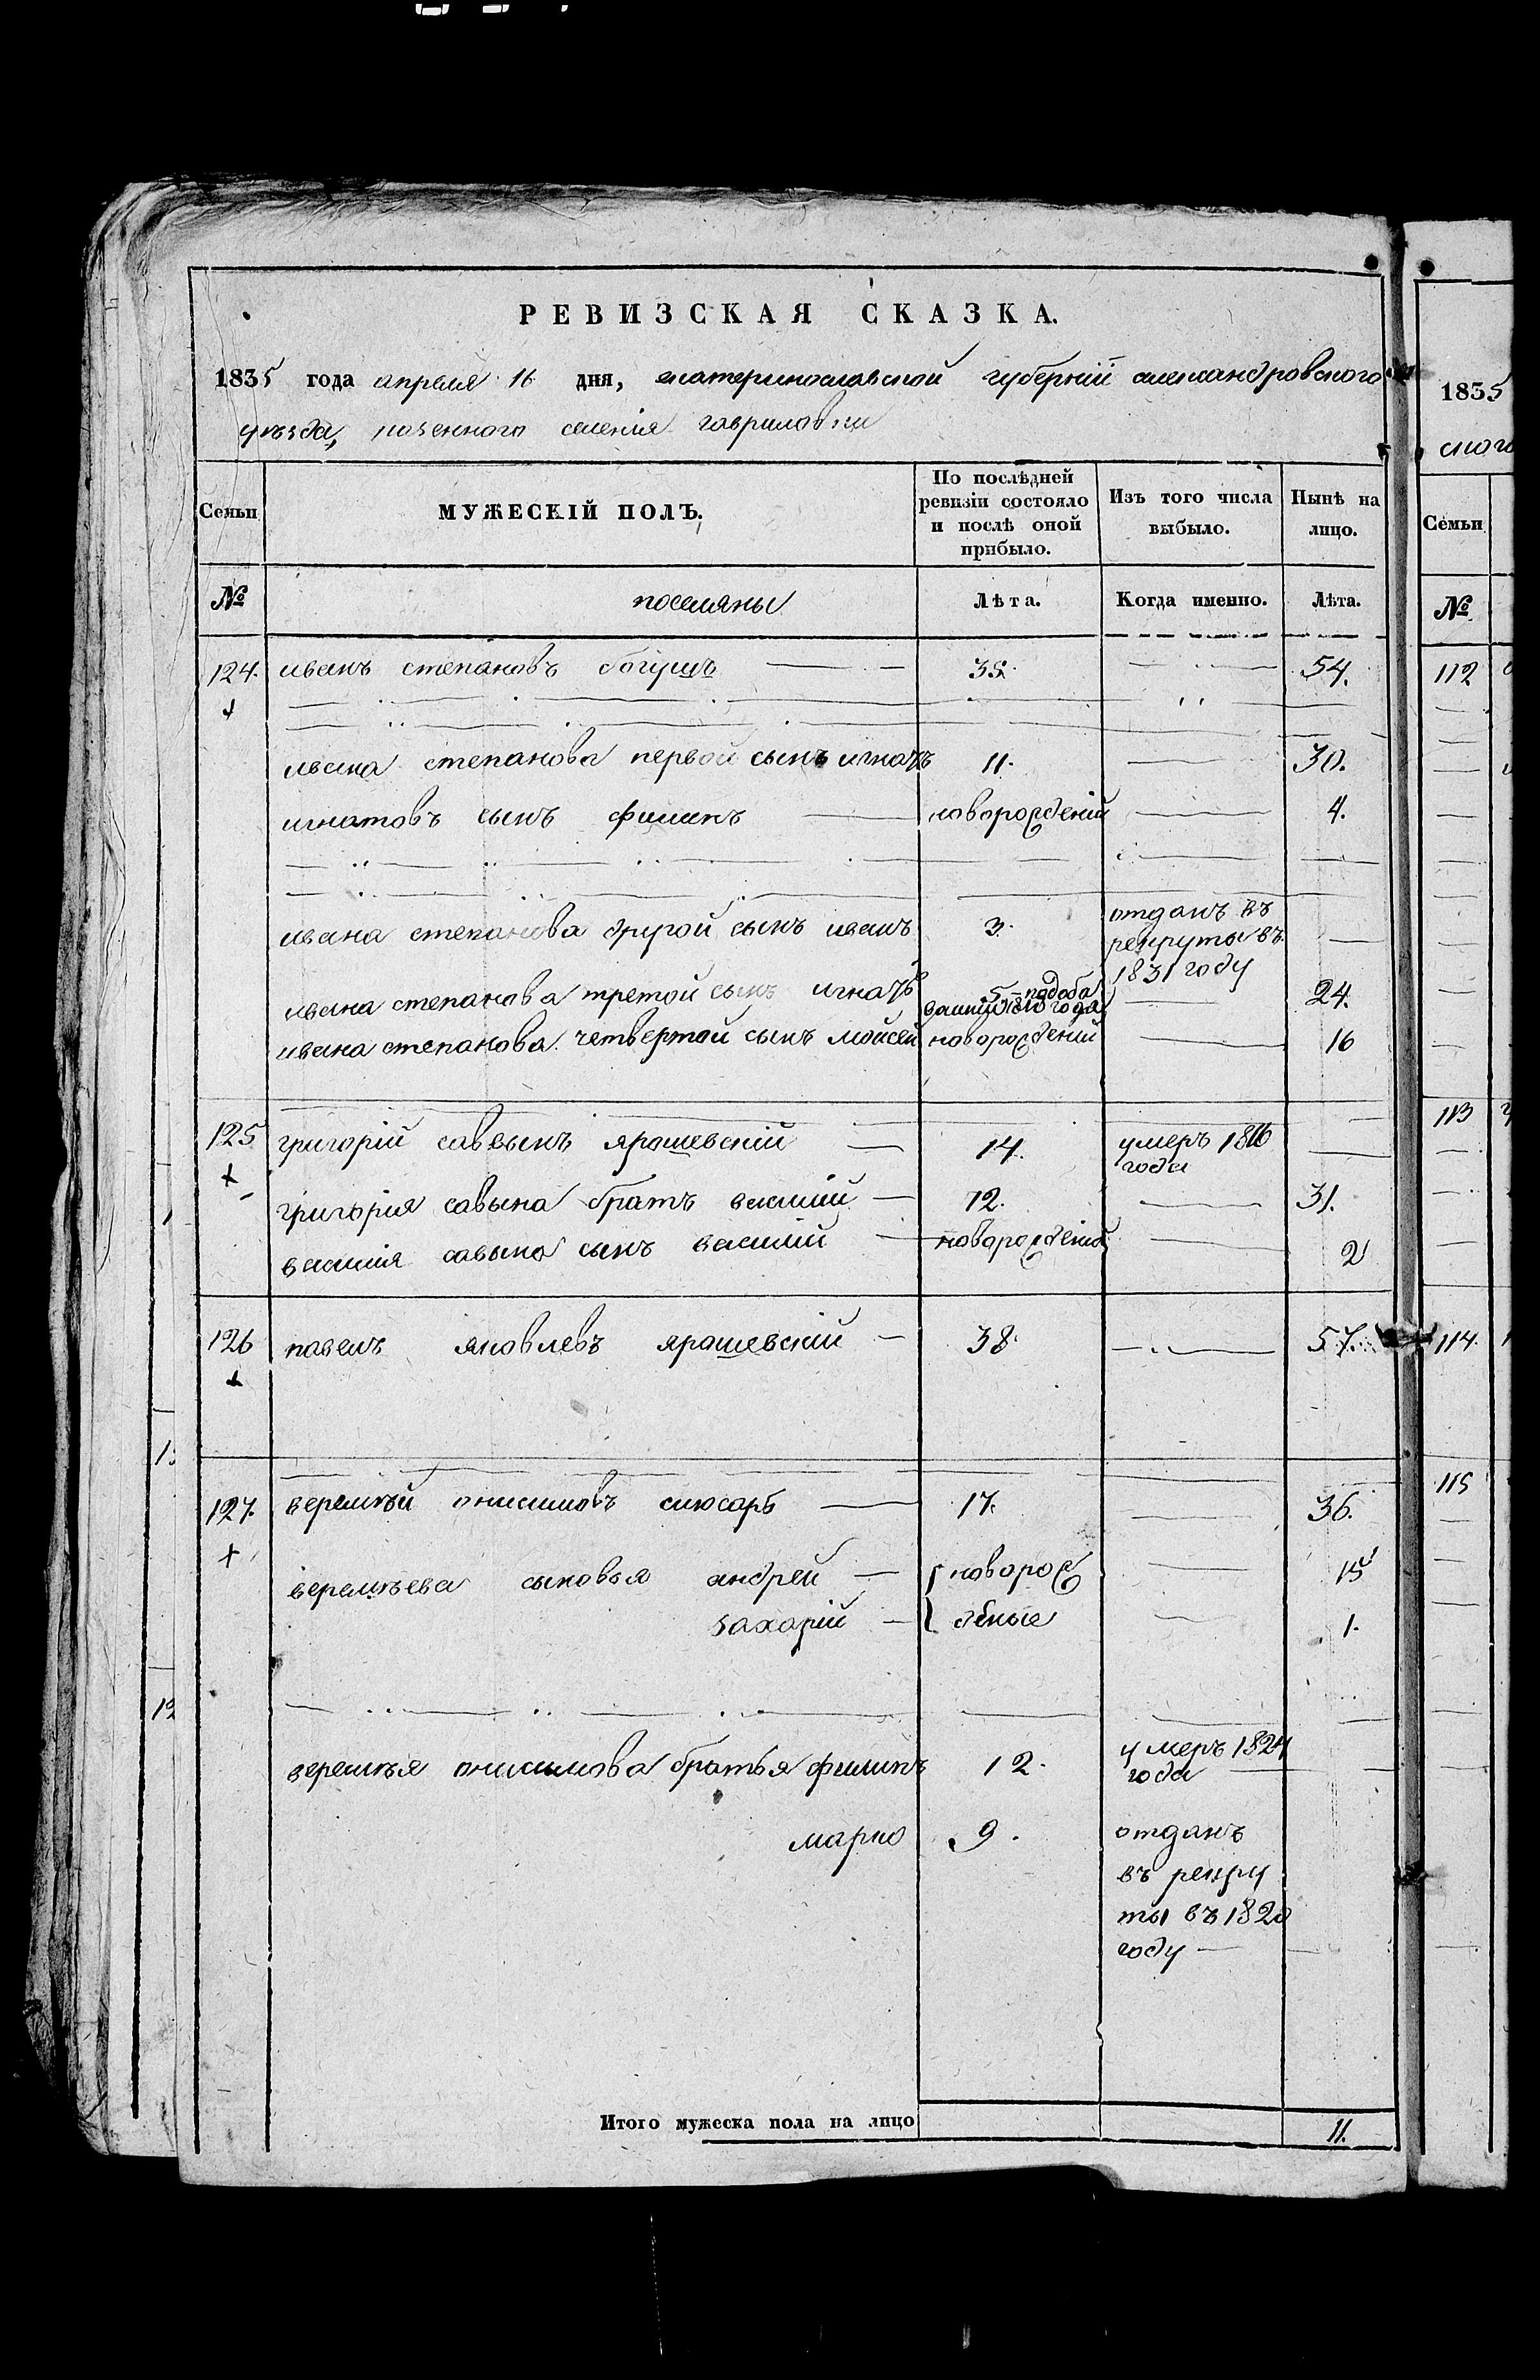 РЕВИЗСКАЯ СКАЗКА.
1835 года апреля 16 дня, екатеринославской губерніи александровского
уезда, казенного селенія гавриловки
Семьи
МУЖЕСКІЙ ПОЛЪ.
По послѣдней ревизіи состояло и послѣ оной прибыло.
Изъ того числа выбыло.
Нынѣ на лицо.
№ поселяны Лѣта. Когда именно. Лѣта.
124. иванъ степановъ богушъ 35. 54.
ивана степанова первой сынъ игнатъ 11. 30.
игнатовъ сынъ филипъ новорожденій 4.
ивана степанова другой сынъ иванъ 3. отданъ въ
рекруты въ
1831 году
ивана степанова третой сынъ игнатъ 5 24.
ивана степанова четвертой сынъ мойсей новорожденій 16
125 григорій саввынъ ярошевскій 14. умеръ 1816
года
григорія савына братъ василій 12. 31.
василія савына сынъ василій новорожденій 2
126 павелъ яковлевъ ярошевскій 38. 57.
127. веремѣй онисимовъ слюсарь 17. 36.
веремѣева сыновья андрей новорож 15
захарій дѣные 1.
веремѣя онисимова братья филипъ 12. умеръ 1824
года
марко 9. отданъ
въ рекру
ты въ 1820
году
Итого мужеска пола на лицо 11.
1835
ского
Семьи
№
112
113
114
115